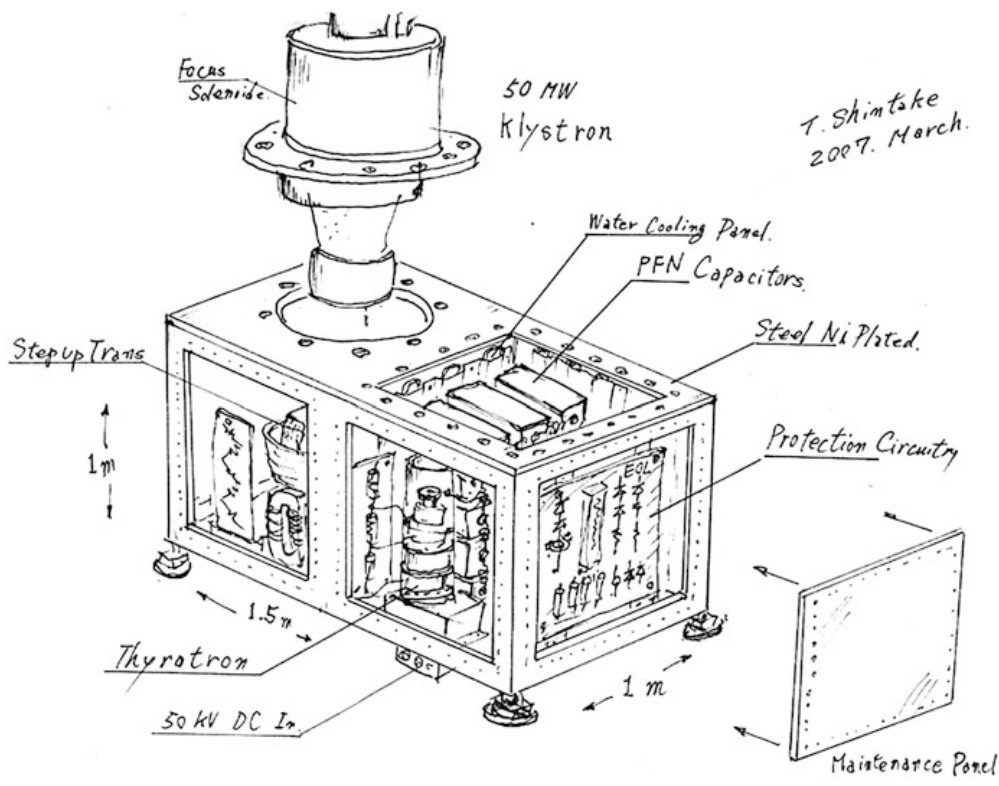 Focus
Solenoide.
50 MW
Klystron
T. Shintake
2007. March.
Water Cooling Panel.
PFN Capacitors.
Steel Ni Plated.
Stepup Trans
Protection Circuitry
EOL
1m
1.5m
Thyratron
1 m
50 kV DC In
Maintenance Panel